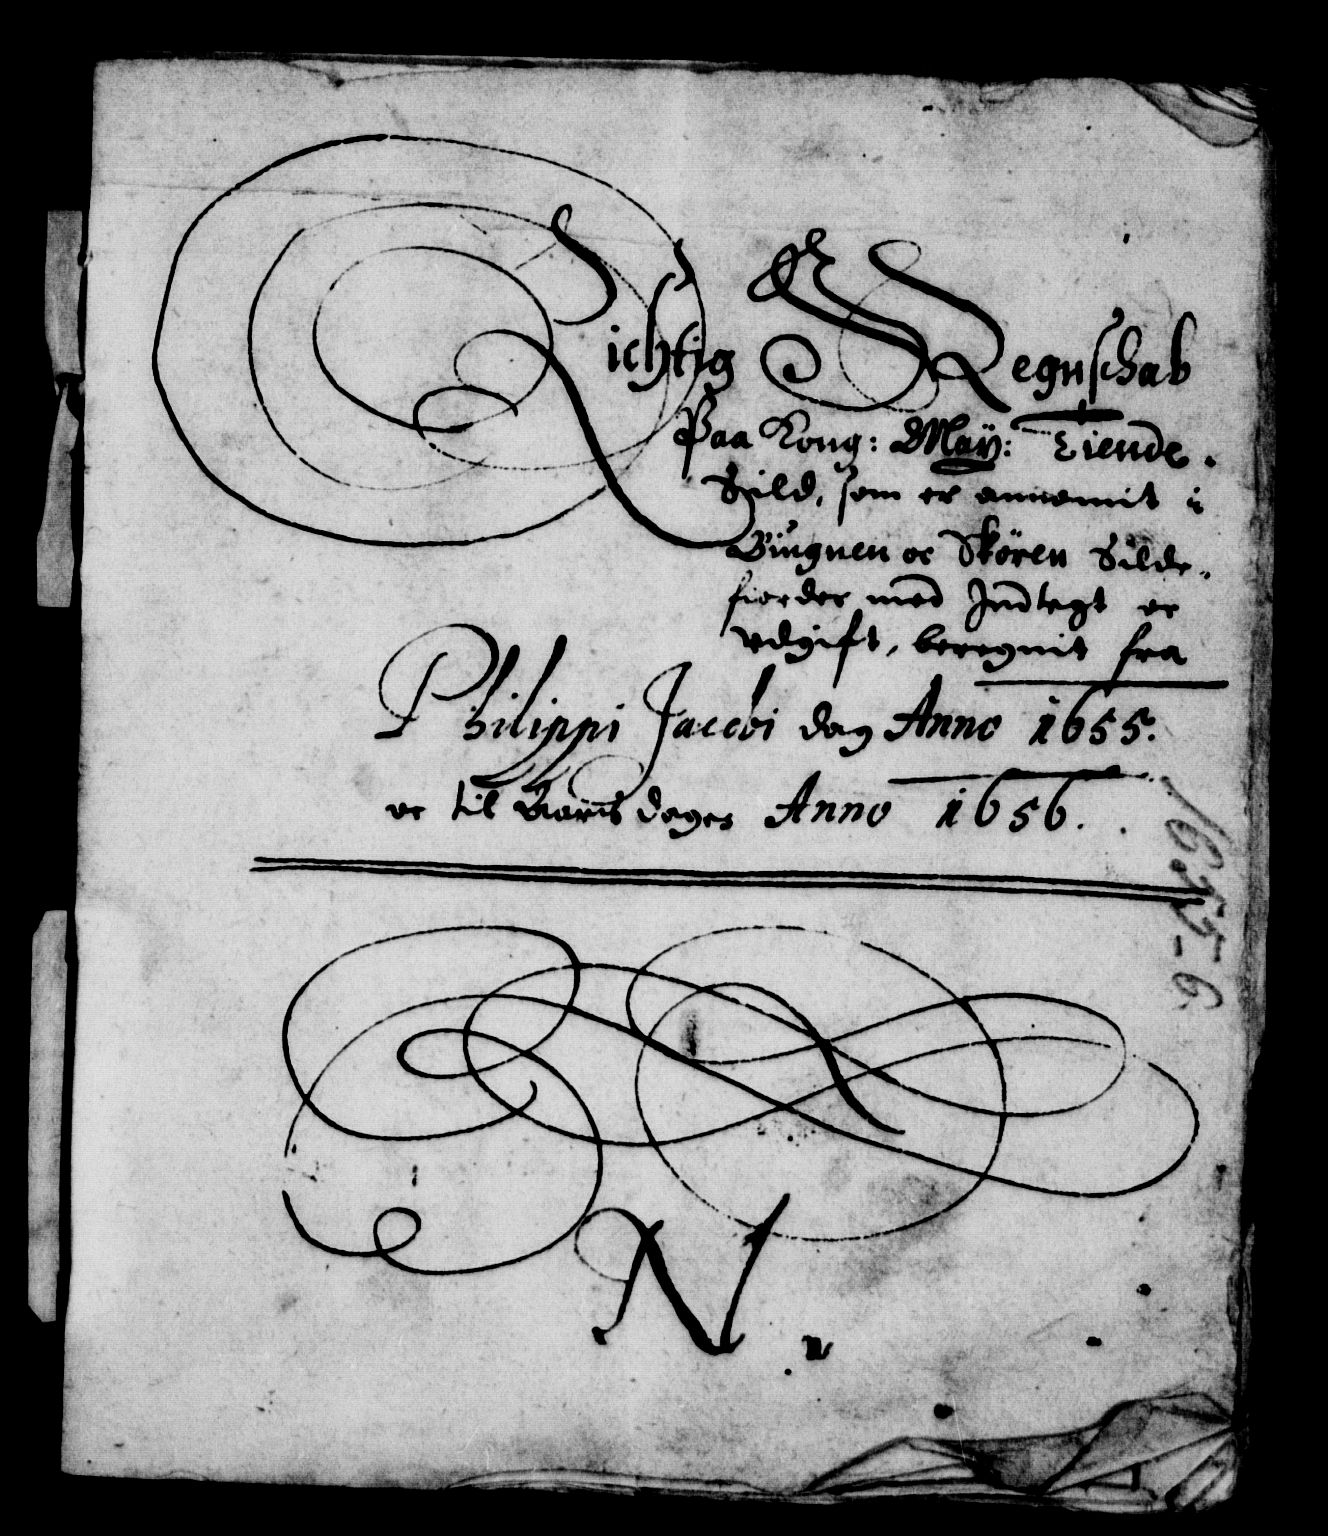 Richtig Regnschab
Paa Kong: May: Tiende
Sild, som er annamit i
Bingnen oc Skören Silde-
fiorder med Indtegt oc
vdgift, beregnit fra
Philippi Jacobi dag Anno 1655.
oc til Aarsdagen Anno 1656.
1655-6
N